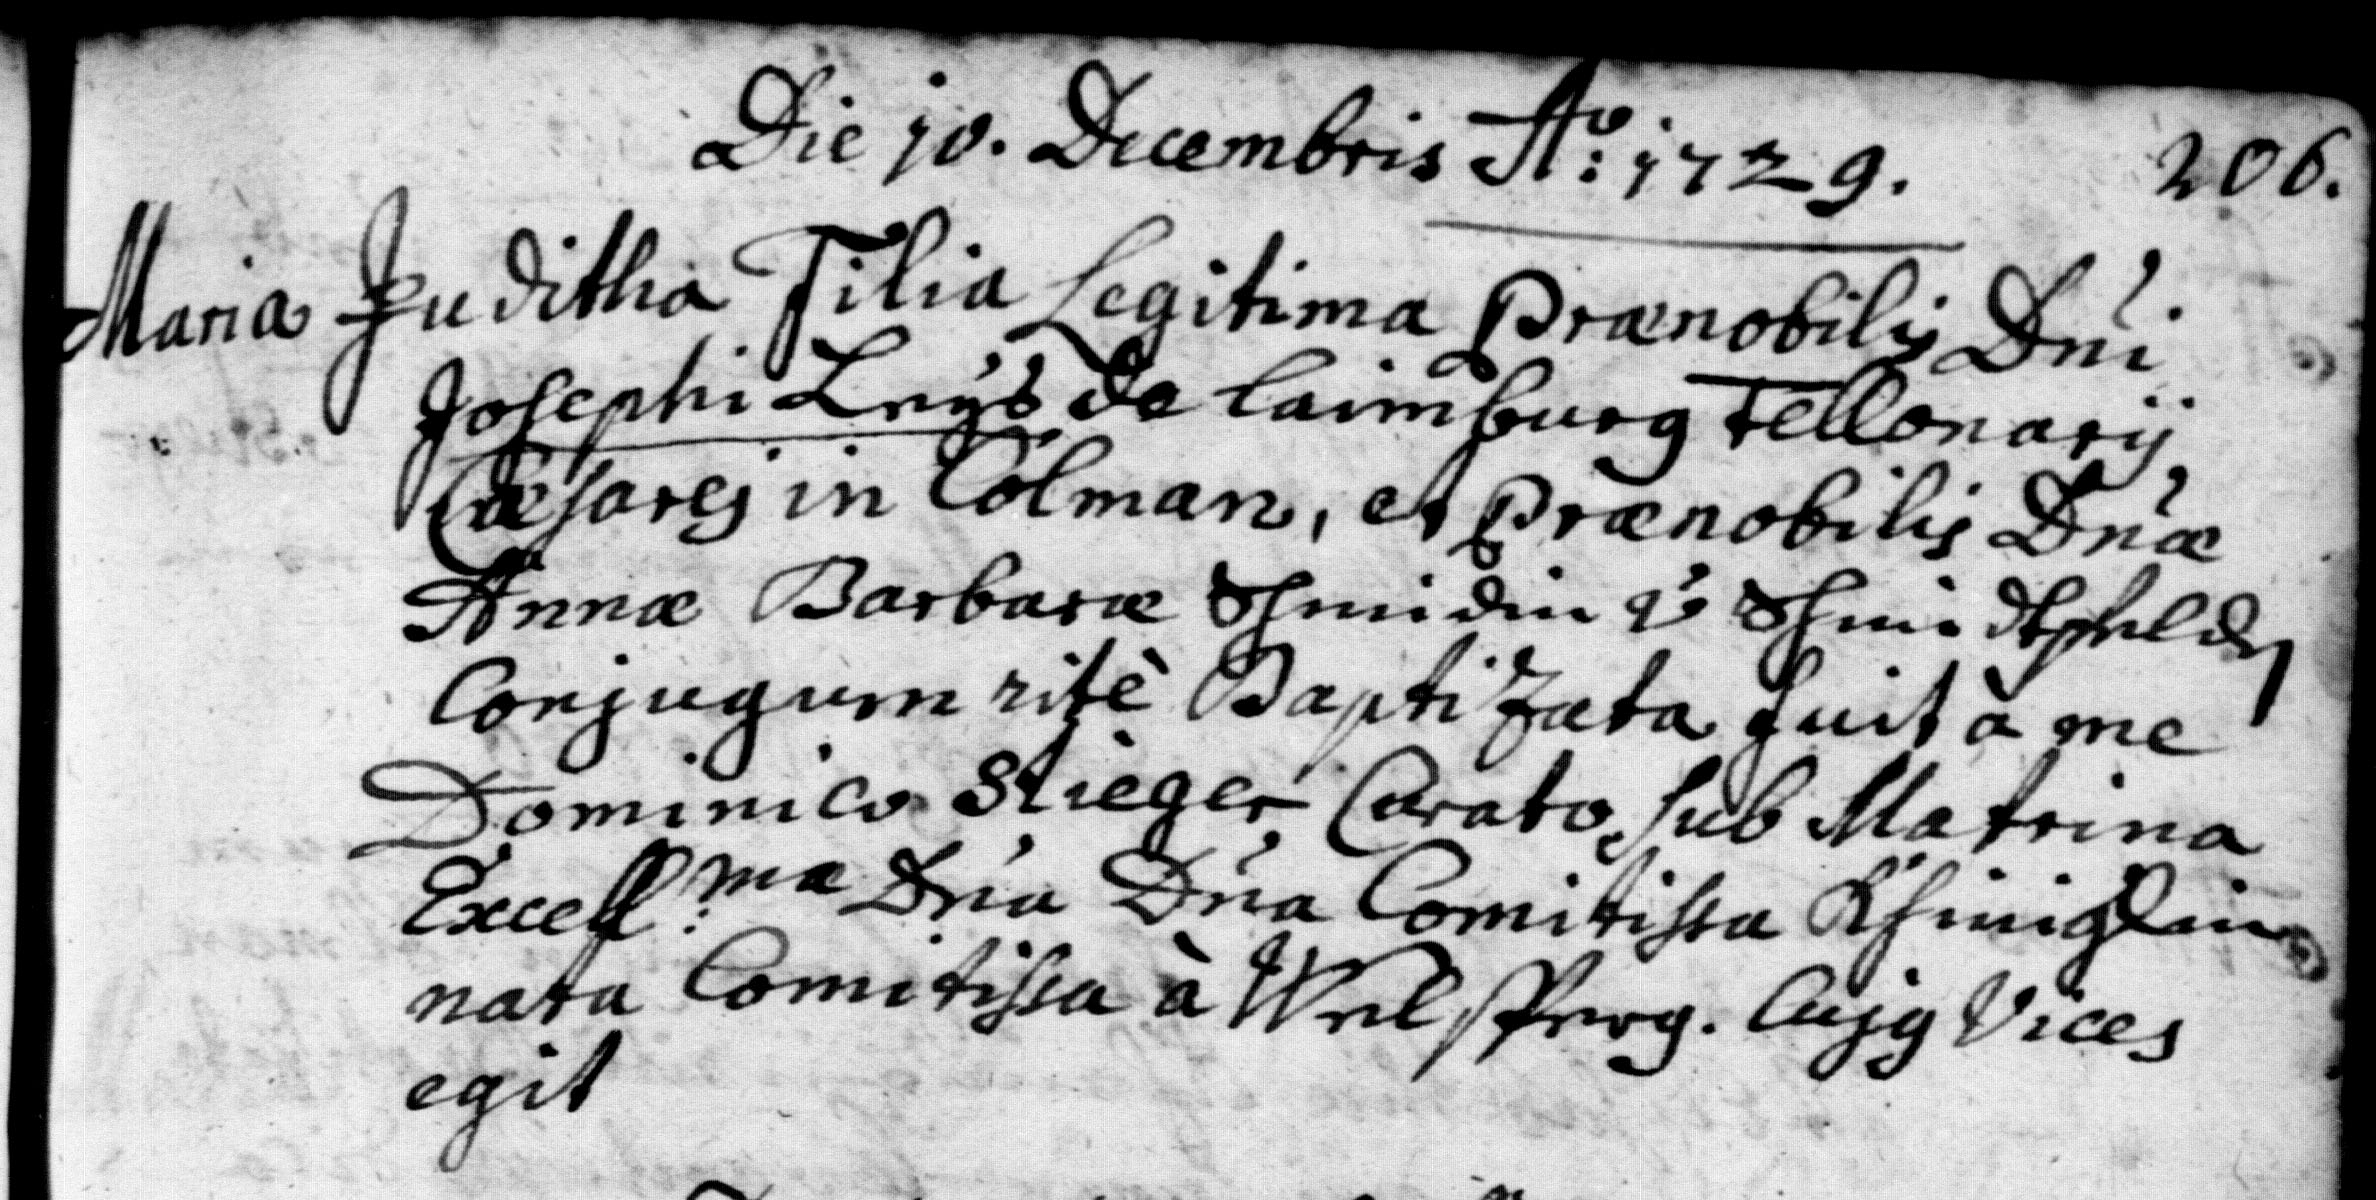 Die 10. Decembris Aō: 1729. 206.
Maria Juditha Filia Legitima Prænobilis Dn̄i
Josephi de Laimburg Tellonarij
Cæsarej in Colman, et Prænobilis Dn̄æ
Annæ Barbaræ Schmidin v. Schmidtfeldt
Conjugum ritè Baptizata fuit à me
Dominico Stieger Curato, sub Matrina
Excell:mæ Dn̄a Dn̄a Comitissa Khiniglin
nata Comitissa à Welsperg. Cujus Vices
egit